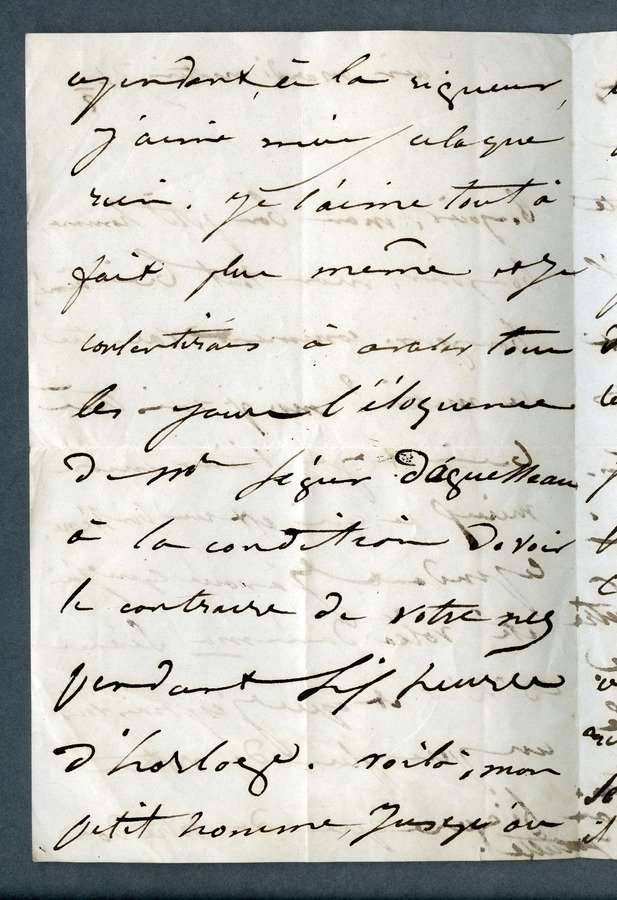 cependant, à la rigueur,
j'aime mieux cela que
rien. Je l'aime tout à
fait plus même et je
consentirais à avaler tous
les jours l'éloquence
de Mr Ségur d'aguesseau
à la condition de voir
le contraire de votre nez
pendant six heures
d'horloge. voilà, mon
petit homme, jusqu'où